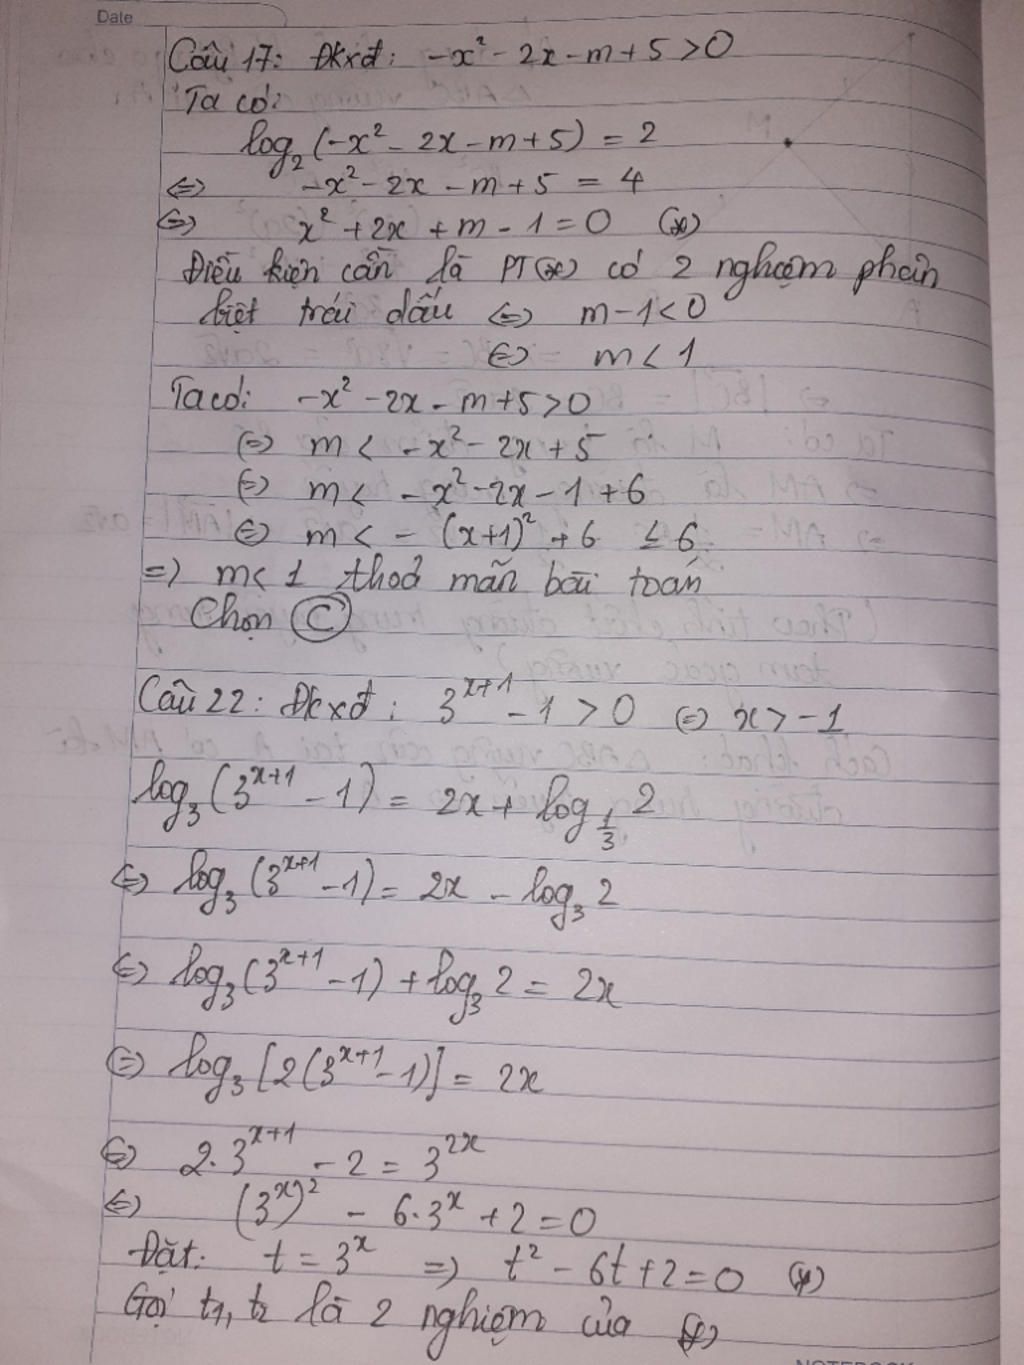 Date
Câu 17: Đkxđ: -x² - 2x - m + 5 > 0
Ta có:
log₂(-x² - 2x - m + 5) = 2
⇔ -x² - 2x - m + 5 = 4
⇔ x² + 2x + m - 1 = 0 (*)
Điều kiện cần là PT(*) có 2 nghiệm phân
biệt trái dấu ⇔ m - 1 < 0
⇔ m < 1
Ta có: -x² - 2x - m + 5 > 0
⇔ m < -x² - 2x + 5
⇔ m < -x² - 2x - 1 + 6
⇔ m < -(x+1)² + 6 ≤ 6
⇒ m < 1 thoả mãn bài toán
Chọn C
Câu 22: Đkxđ: 3^{x+1} - 1 > 0 ⇔ x > -1
log₃(3^{x+1} - 1) = 2x + log_{1/3} 2
⇔ log₃(3^{x+1} - 1) = 2x - log₃ 2
⇔ log₃(3^{x+1} - 1) + log₃ 2 = 2x
⇔ log₃[2(3^{x+1} - 1)] = 2x
⇔ 2.3^{x+1} - 2 = 3^{2x}
⇔ (3^x)² - 6.3^x + 2 = 0
Đặt: t = 3^x ⇒ t² - 6t + 2 = 0 (*)
Gọi t₁, t₂ là 2 nghiệm của (*)